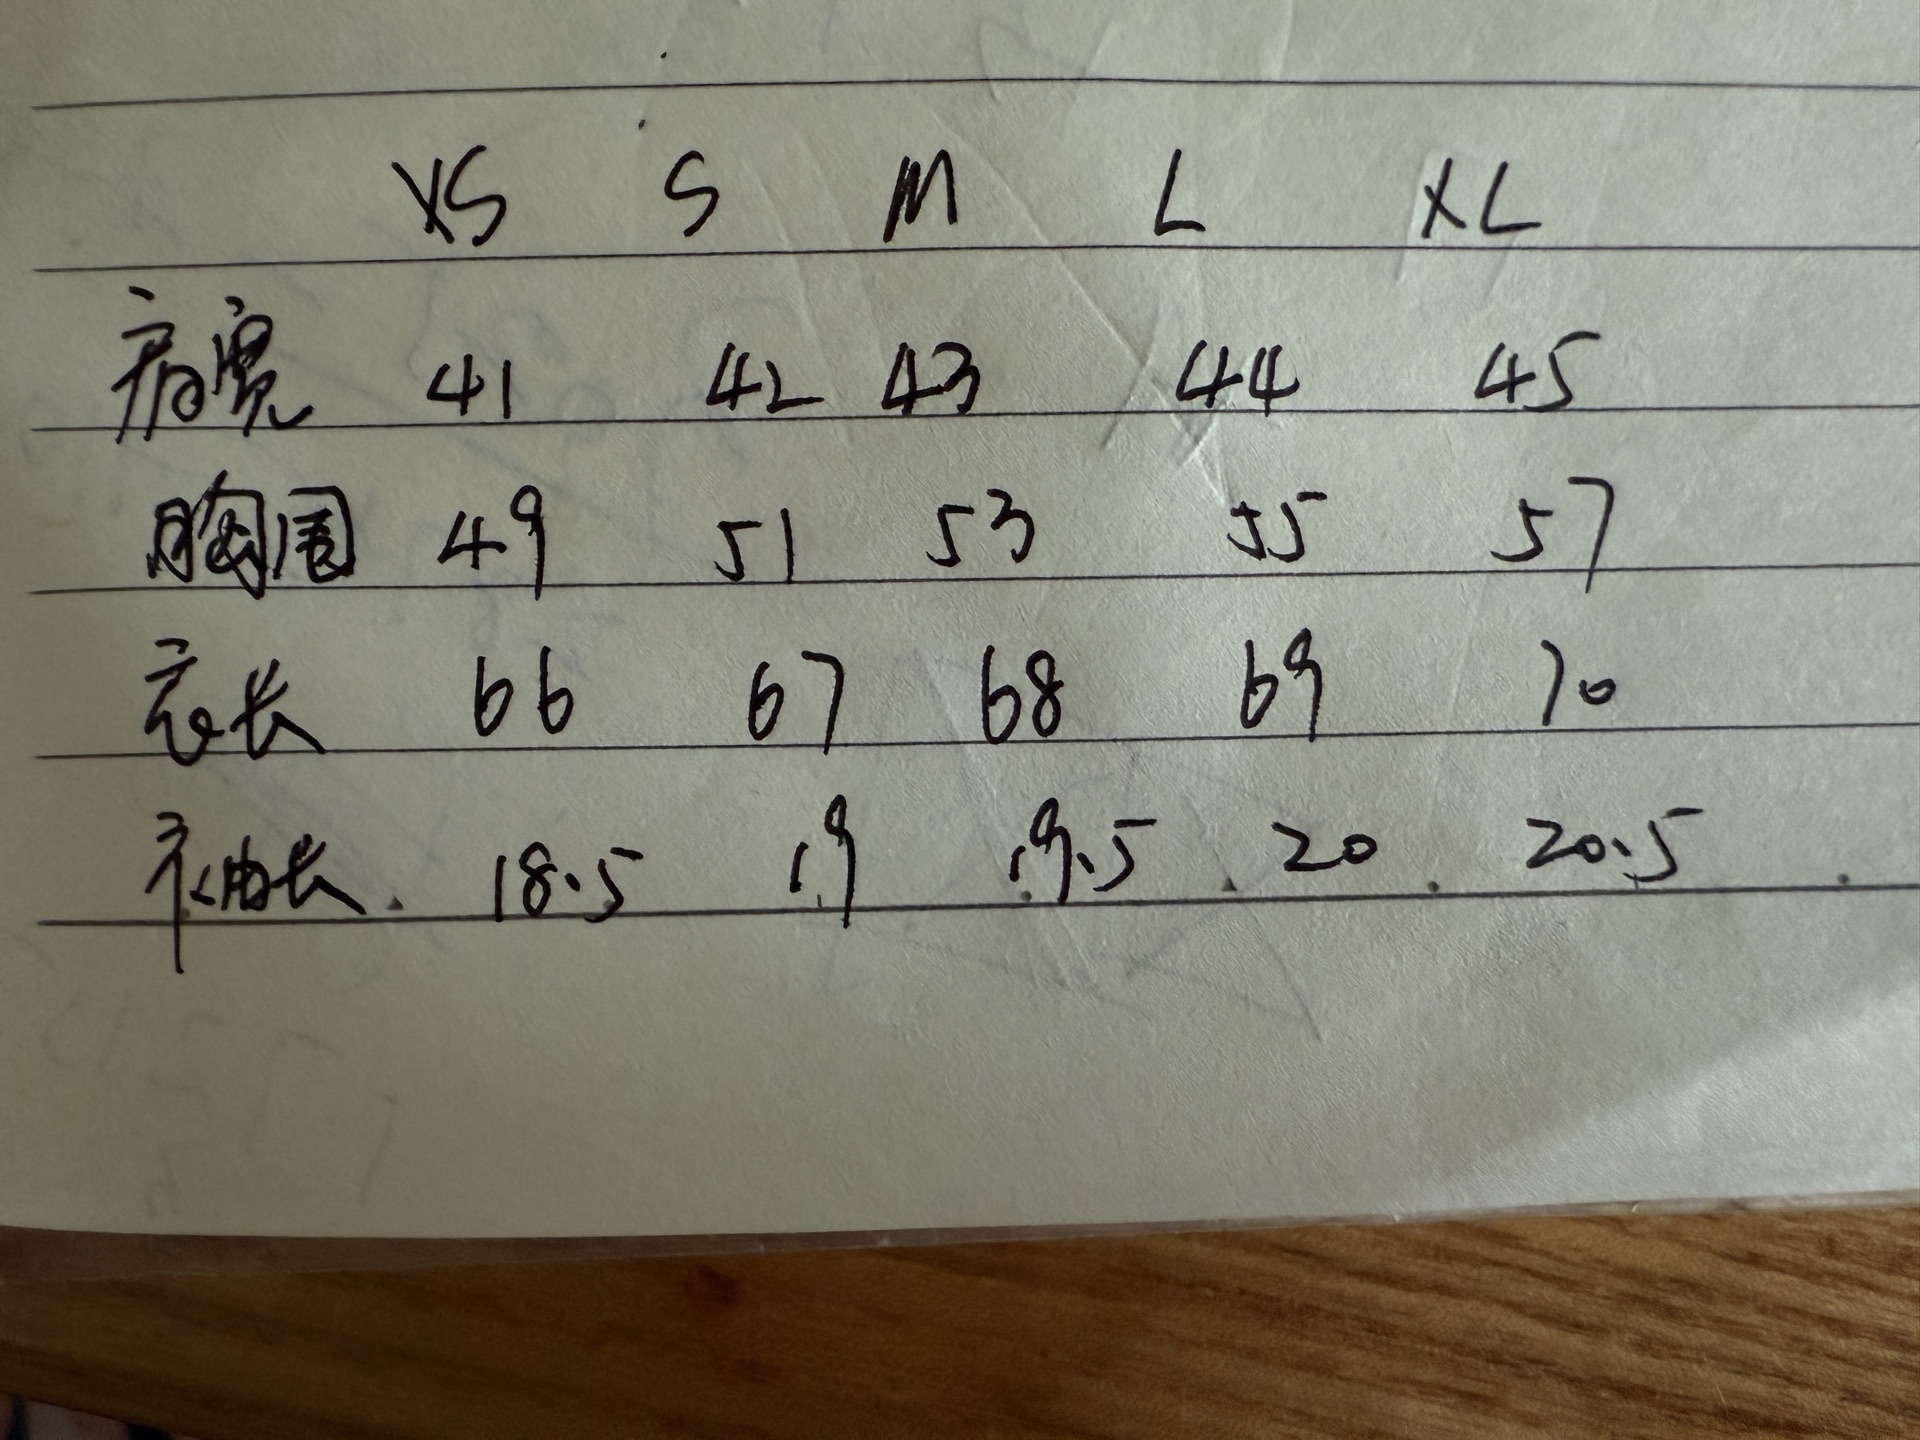 XS S M L XL
肩宽 41 42 43 44 45
胸围 49 51 53 55 57
衣长 66 67 68 69 70
袖长 18.5 19 19.5 20 20.5